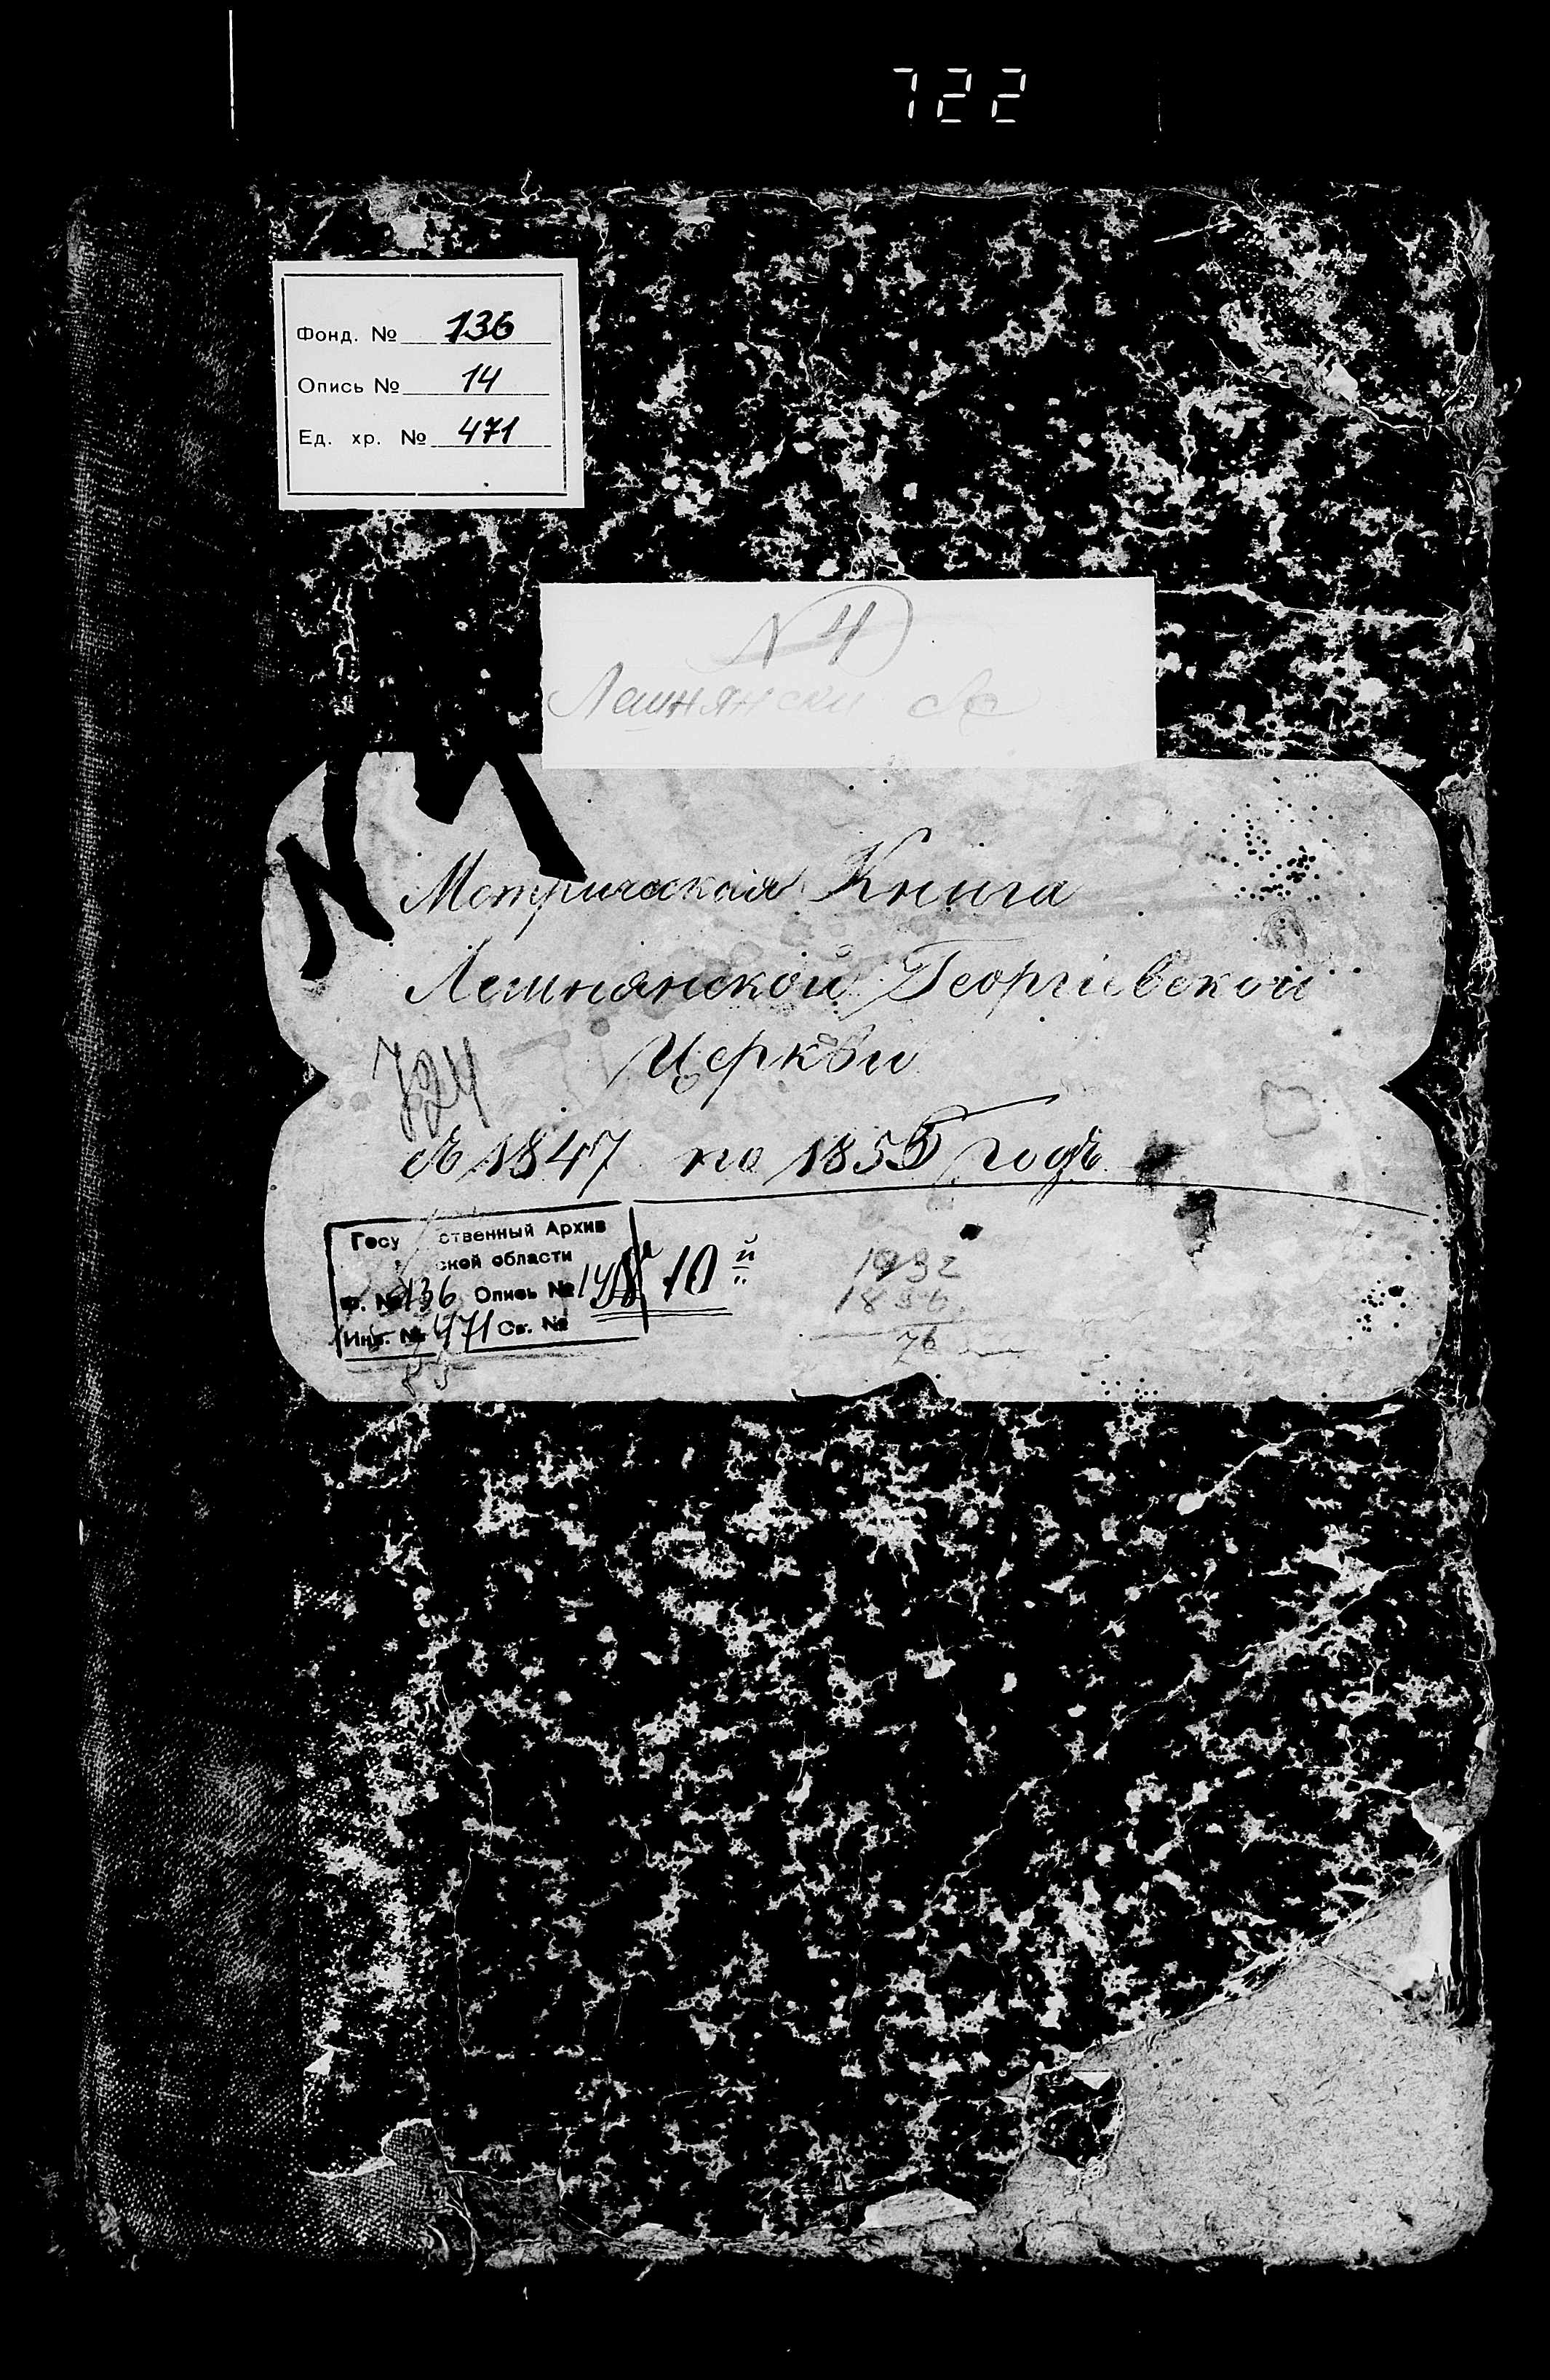 722
Фонд. № 136
Опись № 14
Ед. хр. № 471
N 4
Лешнянски
N 4
Метрическая Книга
Лешнянской Георгіевской
Церкви
724
съ 1847 по 1855 годъ
Госу ственный Архив
ской области
Ф. № 136 Опись № 14
Инв. № 471 Св. №
10й
1932
1856
76